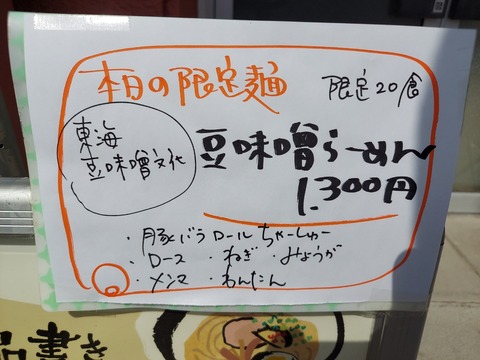 本日の限定麺
限定20食
東海
豆味噌文化
豆味噌らーめん
1.300円
・豚バラロールちゃーしゅー
・ロース ・ねぎ ・みょうが
・メンマ ・わんたん
品書き